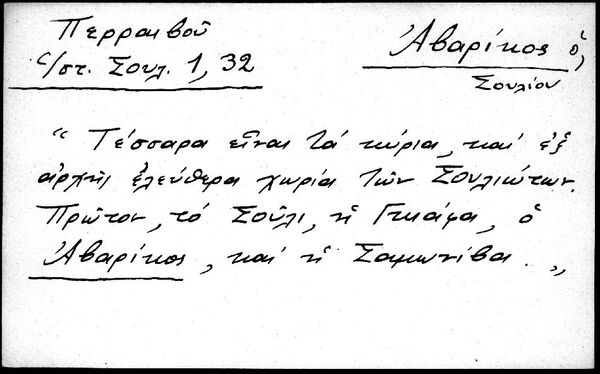 Περραιβοῦ
Ἱστ. Σουλ. 1, 32
Ἀβαρίκος ὁ,
Σουλίου
“ Τέσσαρα εἶναι τά κύρια, καί ἐξ
ἀρχῆς ἐλεύθερα χωρία τῶν Σουλιώτων.
Πρῶτον, τό Σοῦλι, ἡ Γκιάφα, ὁ
Ἀβαρίκος, καί ἡ Σαμωνίβα. „